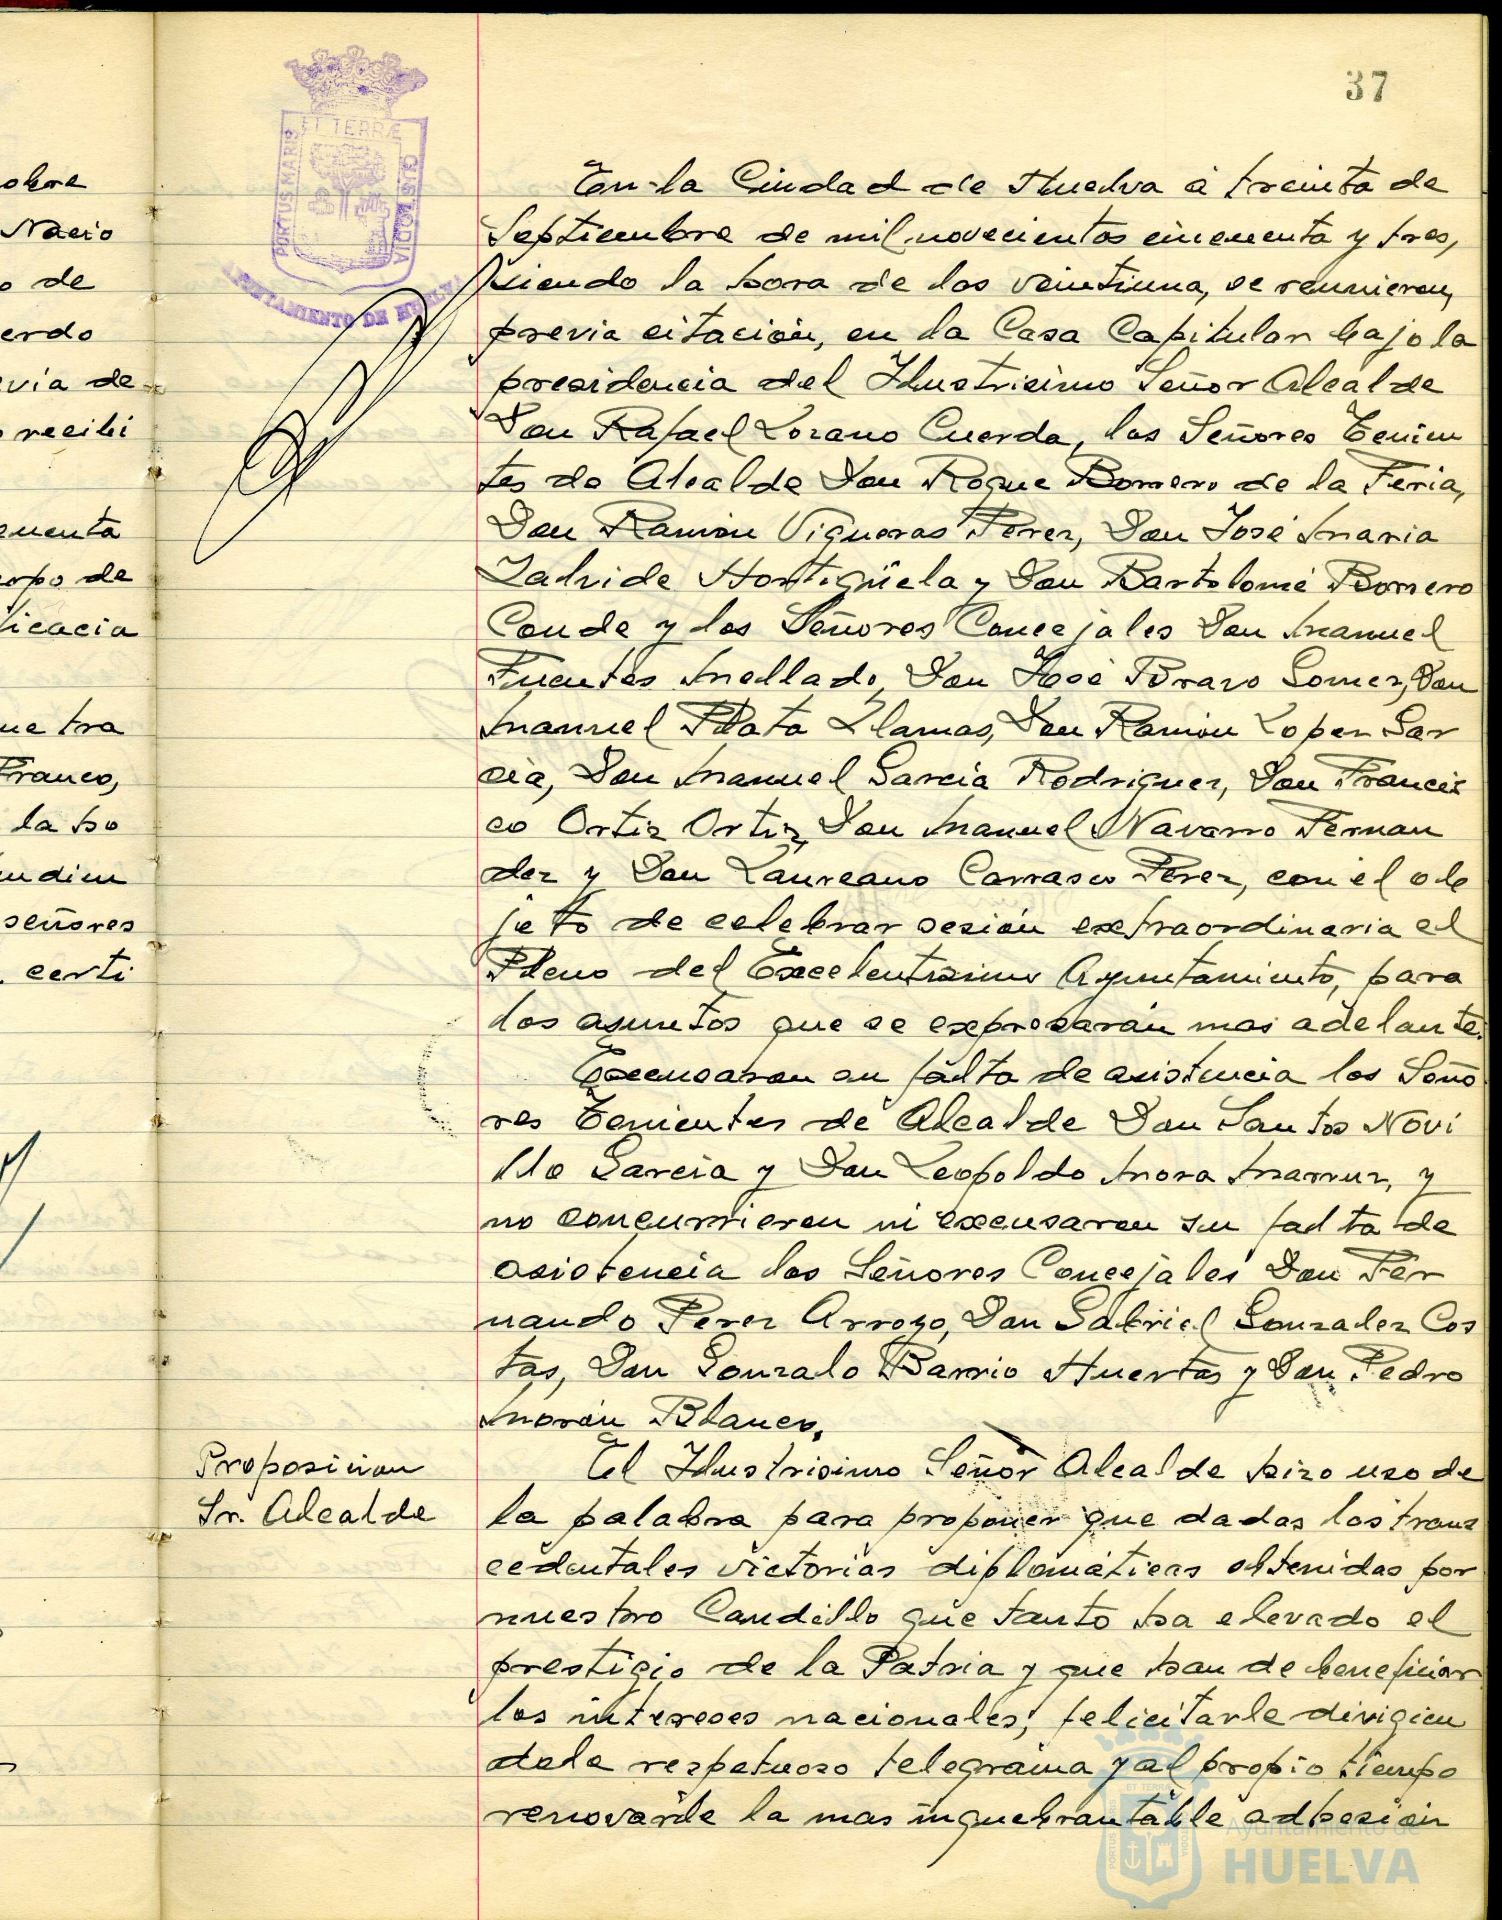 37
ET TERRÆ
PORTUS MARIS
CUSTODIA
AYUNTAMIENTO DE HUELVA
obre
Nacio
o de
erdo
evia de
recibi
cuenta
erpo de
ficacia
ue tra
Franco,
la ho
señores
certi
En la Ciudad de Huelva á treinta de
Septiembre de mil novecientos cincuenta y tres,
siendo la hora de las veintiuna, se reunieron,
previa citación, en la Casa Capitular bajo la
presidencia del Ilustrisimo Señor Alcalde
Don Rafael Lozano Cuerda, los Señores Tenien
tes de Alcalde Don Roque Borrero de la Feria,
Don Ramón Vigueras Perez, Don José Maria
Zalvide Hortigüela y Don Bartolomé Borrero
Conde y los Señores Concejales Don Manuel
Fuentes Mellado, Don José Bravo Gomez, Don
Manuel Plata Llamas, Don Ramón Lopez Gar
cia, Don Manuel Garcia Rodriguez, Don Francis
co Ortiz Ortiz, Don Manuel Navarro Fernan
dez y Don Laureano Carrasco Perez, con el ob
jeto de celebrar sesión extraordinaria el
Pleno del Excelentisimo Ayuntamiento, para
los asuntos que se expresarán mas adelante.
Excusaron su falta de asistencia los Seño
res Tenientes de Alcalde Don Santos Novi
llo Garcia y Don Leopoldo Mora Marruz, y
no concurrieron ni excusaron su falta de
asistencia los Señores Concejales Don Fer
nando Perez Arroyo, Don Gabriel Gonzalez Cos
tas, Don Gonzalo Barrio Huertas y Don Pedro
Morón Blanco.
Proposicion
Sr. Alcalde
El Ilustrisimo Señor Alcalde hizo uso de
la palabra para proponer que dadas las trans
cedentales victorias diplomáticas obtenidas por
nuestro Caudillo que tanto ha elevado el
prestigio de la Patria y que han de beneficiar
los intereses nacionales, felicitarle dirigien
dole respetuoso telegrama y al propio tiempo
renovarle la mas inquebrantable adhesión
Ayuntamiento de
HUELVA